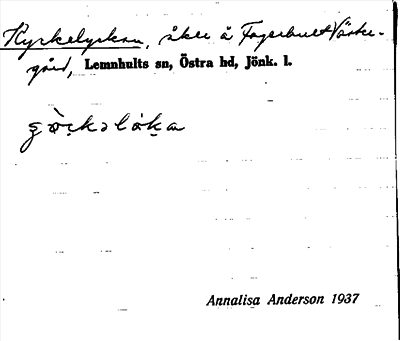 Kyrkelyckan, åker å Fagerhult Väster-
gård, Lemnhults sn, Östra hd, Jönk. l.
Annalisa Anderson 1937